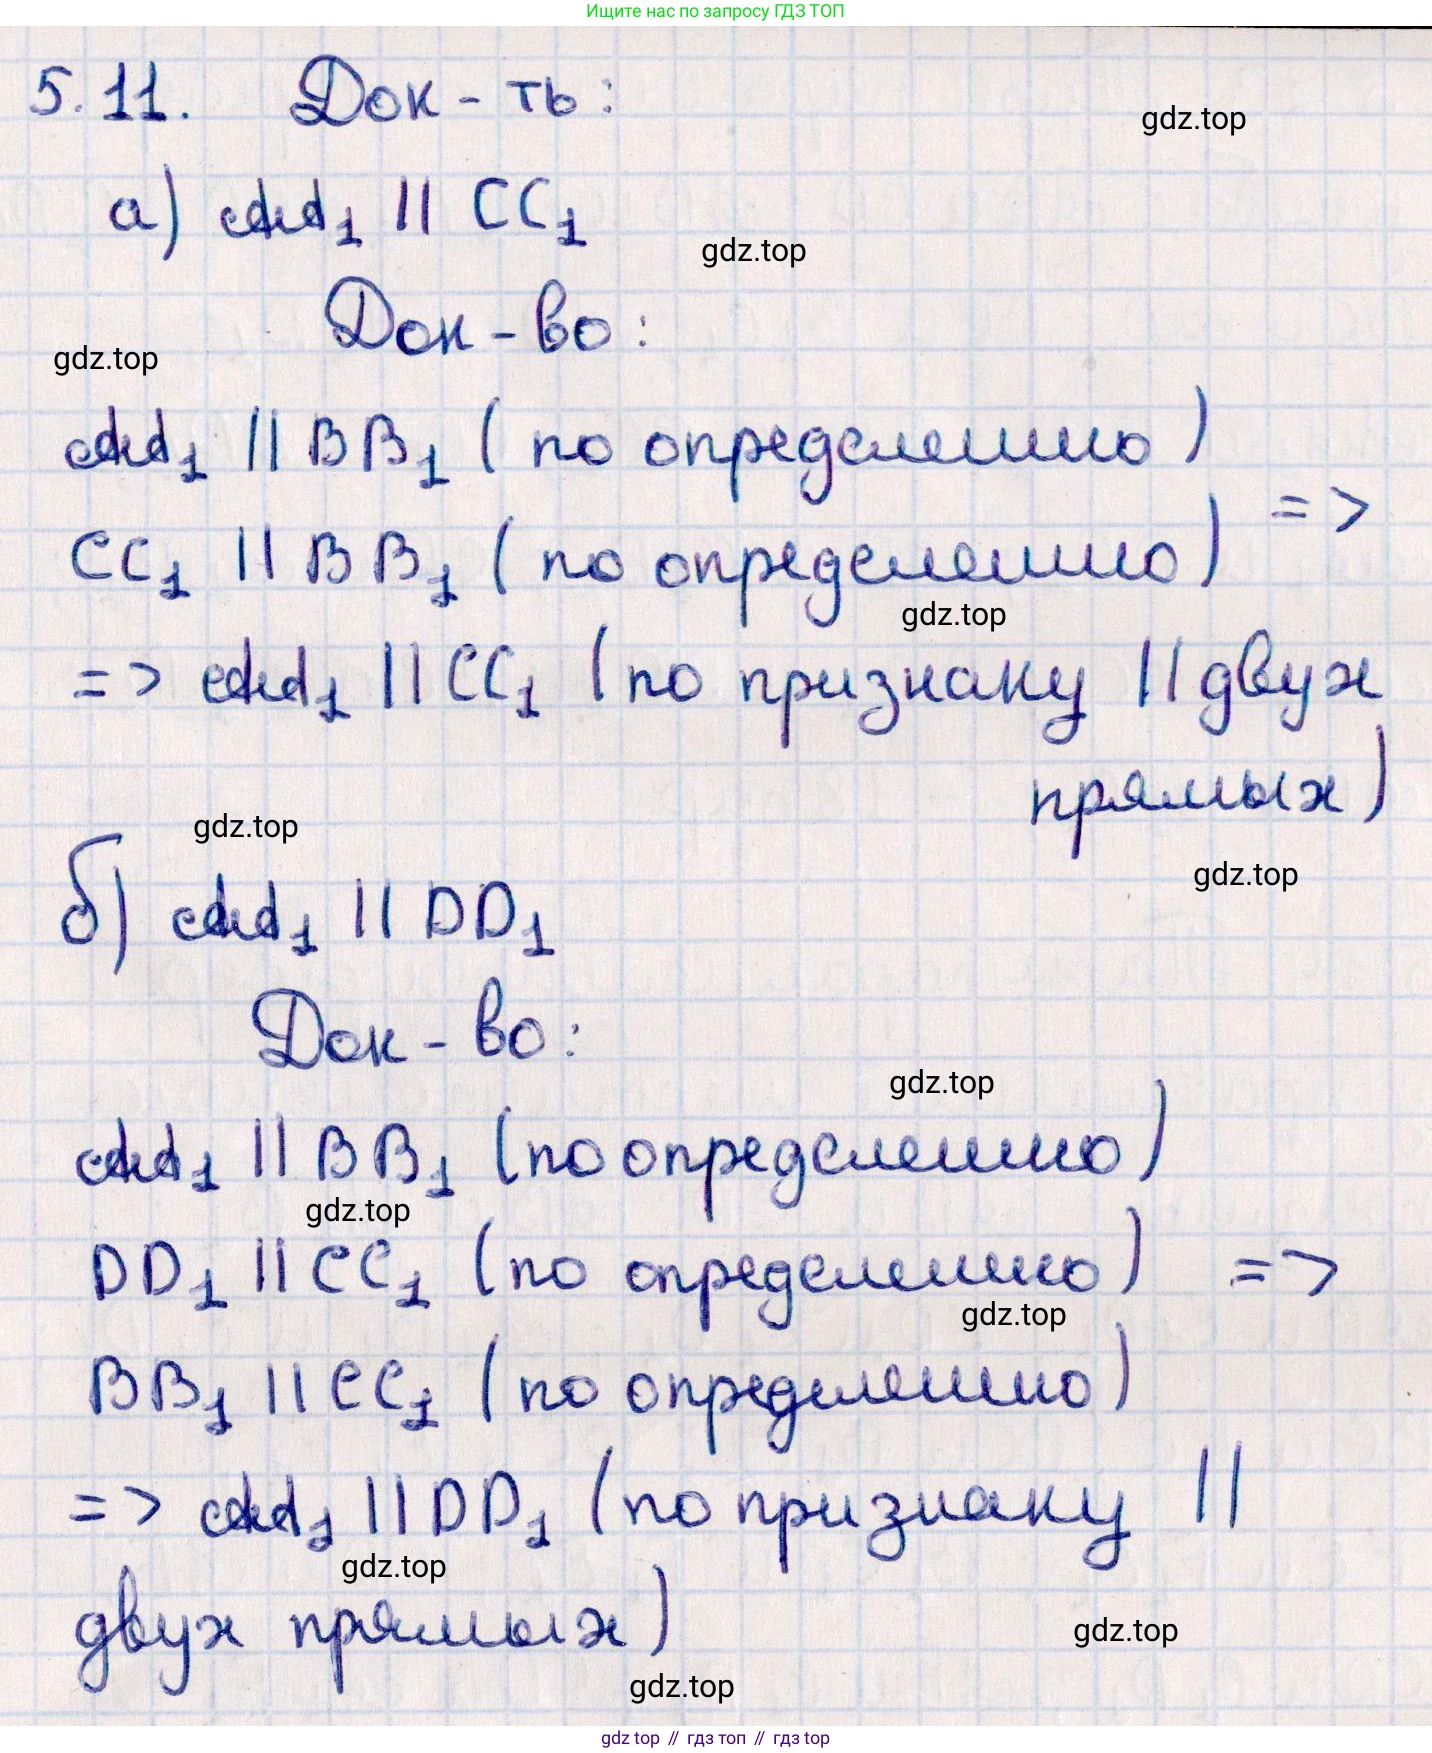 Ищите нас по запросу ГДЗ ТОП
5.11. Док-ть:
gdz.top
а) AA₁ || CC₁
gdz.top
Док-во:
gdz.top
AA₁ || BB₁ (по определению)
=>
CC₁ || BB₁ (по определению)
gdz.top
=> AA₁ || CC₁ (по признаку || двух
прямых)
gdz.top
gdz.top
б) AA₁ || DD₁
Док-во:
gdz.top
AA₁ || BB₁ (по определению)
gdz.top
DD₁ || CC₁ (по определению) =>
gdz.top
BB₁ || CC₁ (по определению)
=> AA₁ || DD₁ (по признаку ||
gdz.top
двух прямых)
gdz.top
gdz.top
gdz top // гдз топ // гдз top